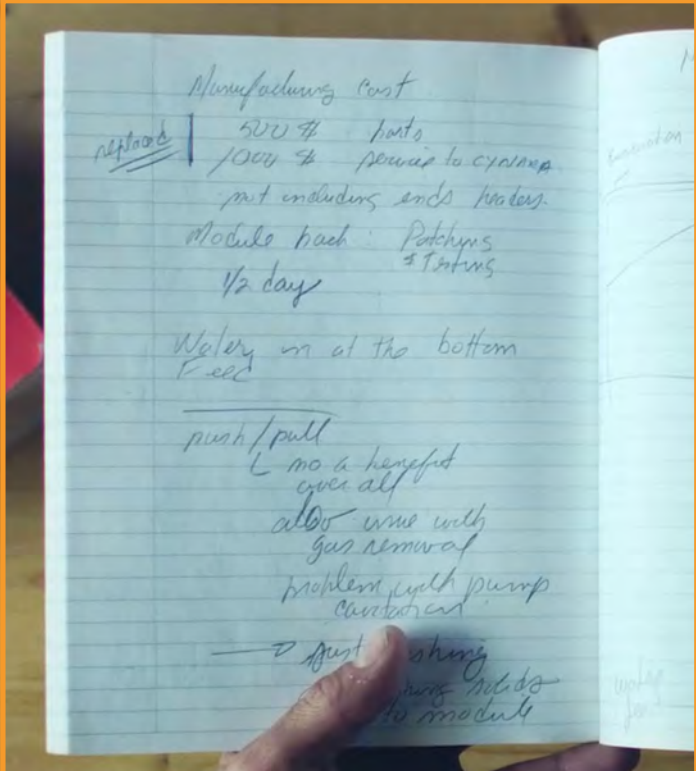 Manufacturing Cost
replaced
500 $ parts
1000 $ service to CYNARA
not including ends headers.
Module back : Patching
& Testing
1/2 day
Water in at the bottom
Feed
push/pull
no a benefit
over all
also issue with
gas removal
problem with pump
cavitation
just
solids
to module